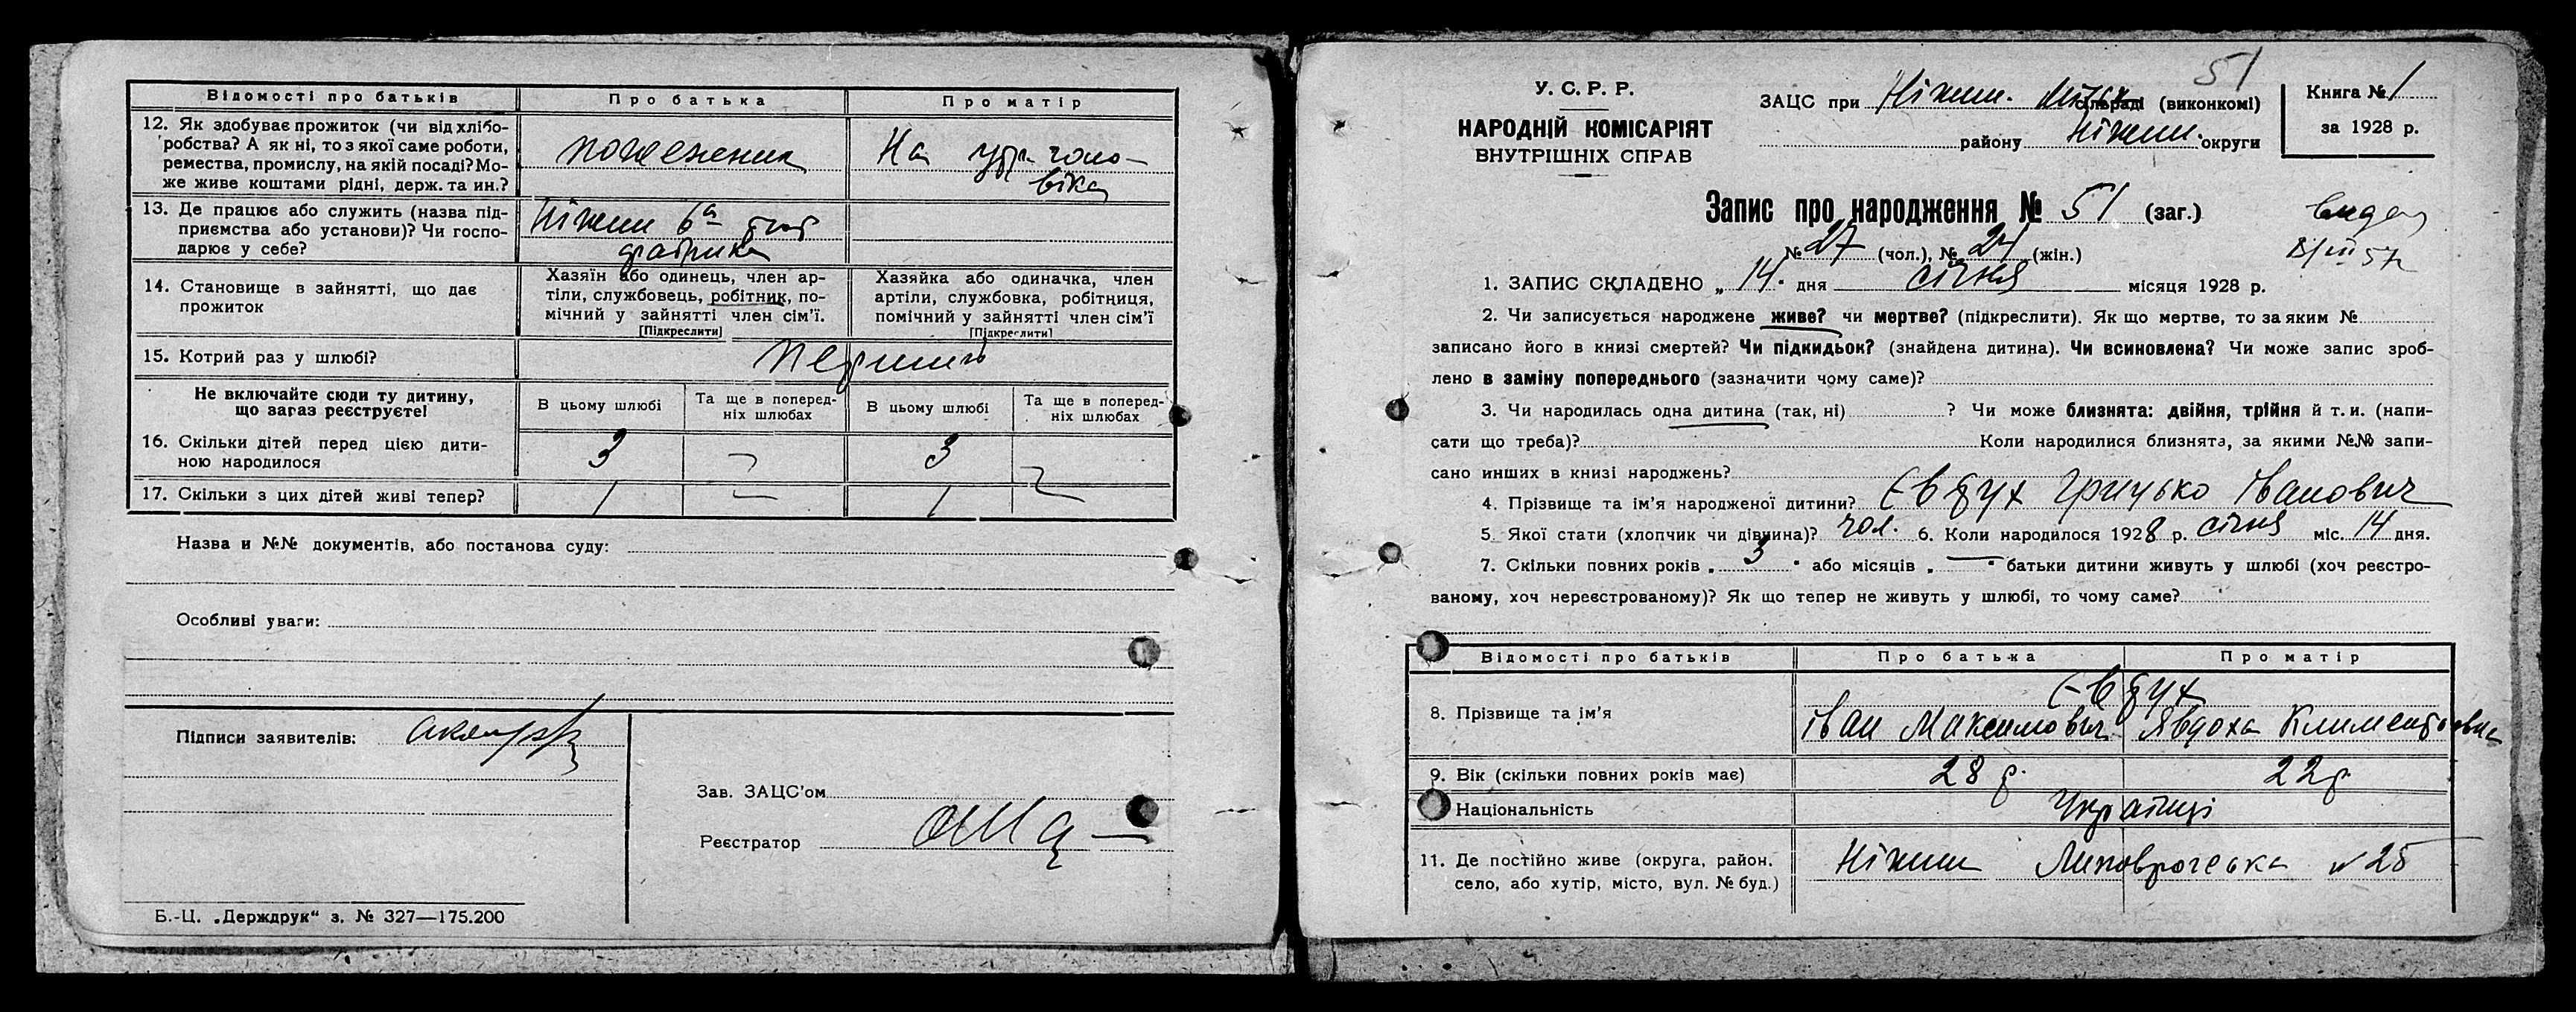 Відомості про батьків Про батька Про матір
12. Як здобуває прожиток (чи від хлібо-
робства? А як ні, то з якої саме роботи,
ремества, промислу, на якій посаді? Мо-
же живе коштами рідні, держ. та ин.?
На утр. чоло-
віка
13. Де працює або служить (назва під-
приємства або установи)? Чи госпо-
дарює у себе?
Ніжин 6а
14. Становище в зайнятті, що дає
прожиток
Хазяїн або одинець, член ар-
тіли, службовець, робітник, по-
мічний у зайнятті член сім'ї.
[Підкреслити]
Хазяйка або одиначка, член
артіли, службовка, робітниця,
помічний у зайнятті член сім'ї
[Підкреслити]
15. Котрий раз у шлюбі? перший
Не включайте сюди ту дитину,
що зараз реєструєте!
В цьому шлюбі
Та ще в поперед-
ніх шлюбах
В цьому шлюбі
Та ще в поперед-
ніх шлюбах
16. Скільки дітей перед цією дити-
ною народилося
3 3
17. Скільки з цих дітей живі тепер? 1 — 1
Назва и №№ документів, або постанова суду:
Особливі уваги:
Підписи заявителів:
Зав. ЗАЦС'ом
Реєстратор
Б.-Ц. „Держдрук" з. № 327—175.200
51
У. С. Р. Р.
НАРОДНІЙ КОМІСАРІЯТ
ВНУТРІШНІХ СПРАВ
ЗАЦС при Ніжин. міськ (виконкомі)
району Ніжин. округи
Книга № 1
за 1928 р.
Запис про народження № 51 (заг.)
№ 27 (чол.), № 24 (жін.)
1. ЗАПИС СКЛАДЕНО „ 14. дня січня місяця 1928 р.
2. Чи записується народжене живе? чи мертве? (підкреслити). Як що мертве, то за яким №
записано його в книзі смертей? Чи підкидьок? (знайдена дитина). Чи всиновлена? Чи може запис зроб-
лено в заміну попереднього (зазначити чому саме)?
3. Чи народилась одна дитина (так, ні) ? Чи може близнята: двійня, трійня й т. и. (напи-
сати що треба)? Коли народилися близнята, за якими №№ запи-
сано инших в книзі народжень?
4. Прізвище та ім'я народженої дитини? Євдух Грицько Іванович
5. Якої стати (хлопчик чи дівчина)? чол. 6. Коли народилося 1928 р. січня міс. 14 дня.
7. Скільки повних років „ 3 " або місяців „ — " батьки дитини живуть у шлюбі (хоч реєстро-
ваному, хоч нереєстрованому)? Як що тепер не живуть у шлюбі, то чому саме?
Відомості про батьків Про батька Про матір
Євдух
8. Прізвище та ім'я Іван Максимович Явдоха Климентьовна
9. Вік (скільки повних років має) 28 р. 22 р
Національність Українці
11. Де постійно живе (округа, район,
село, або хутір, місто, вул. № буд.)
Ніжин № 25